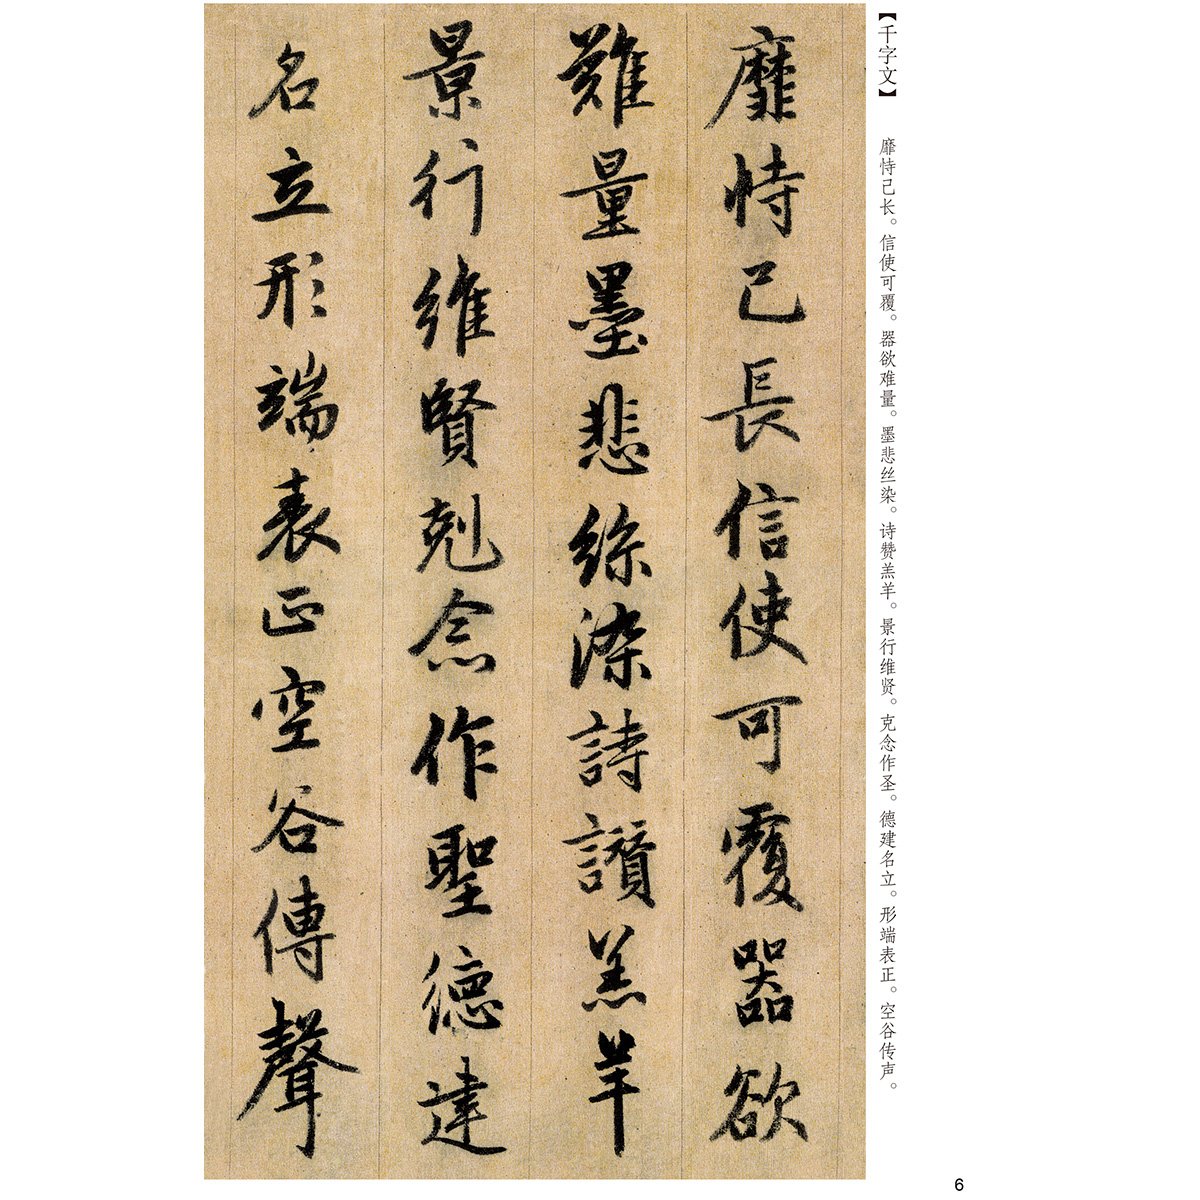 【千字文】
靡恃己长。信使可覆。器欲难量。墨悲丝染。诗赞羔羊。景行维贤。克念作圣。德建名立。形端表正。空谷传声。
靡恃己長信使可覆器欲
難量墨悲絲染詩讃羔羊
景行維賢剋念作聖德建
名立形端表正空谷傳聲
6